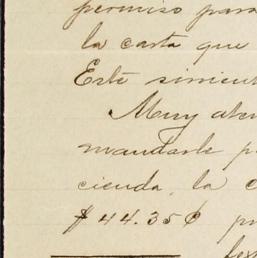 permiso para
la carta que
Este
Muy aten
mandarle p
cienda, la C
$44.35¢ p